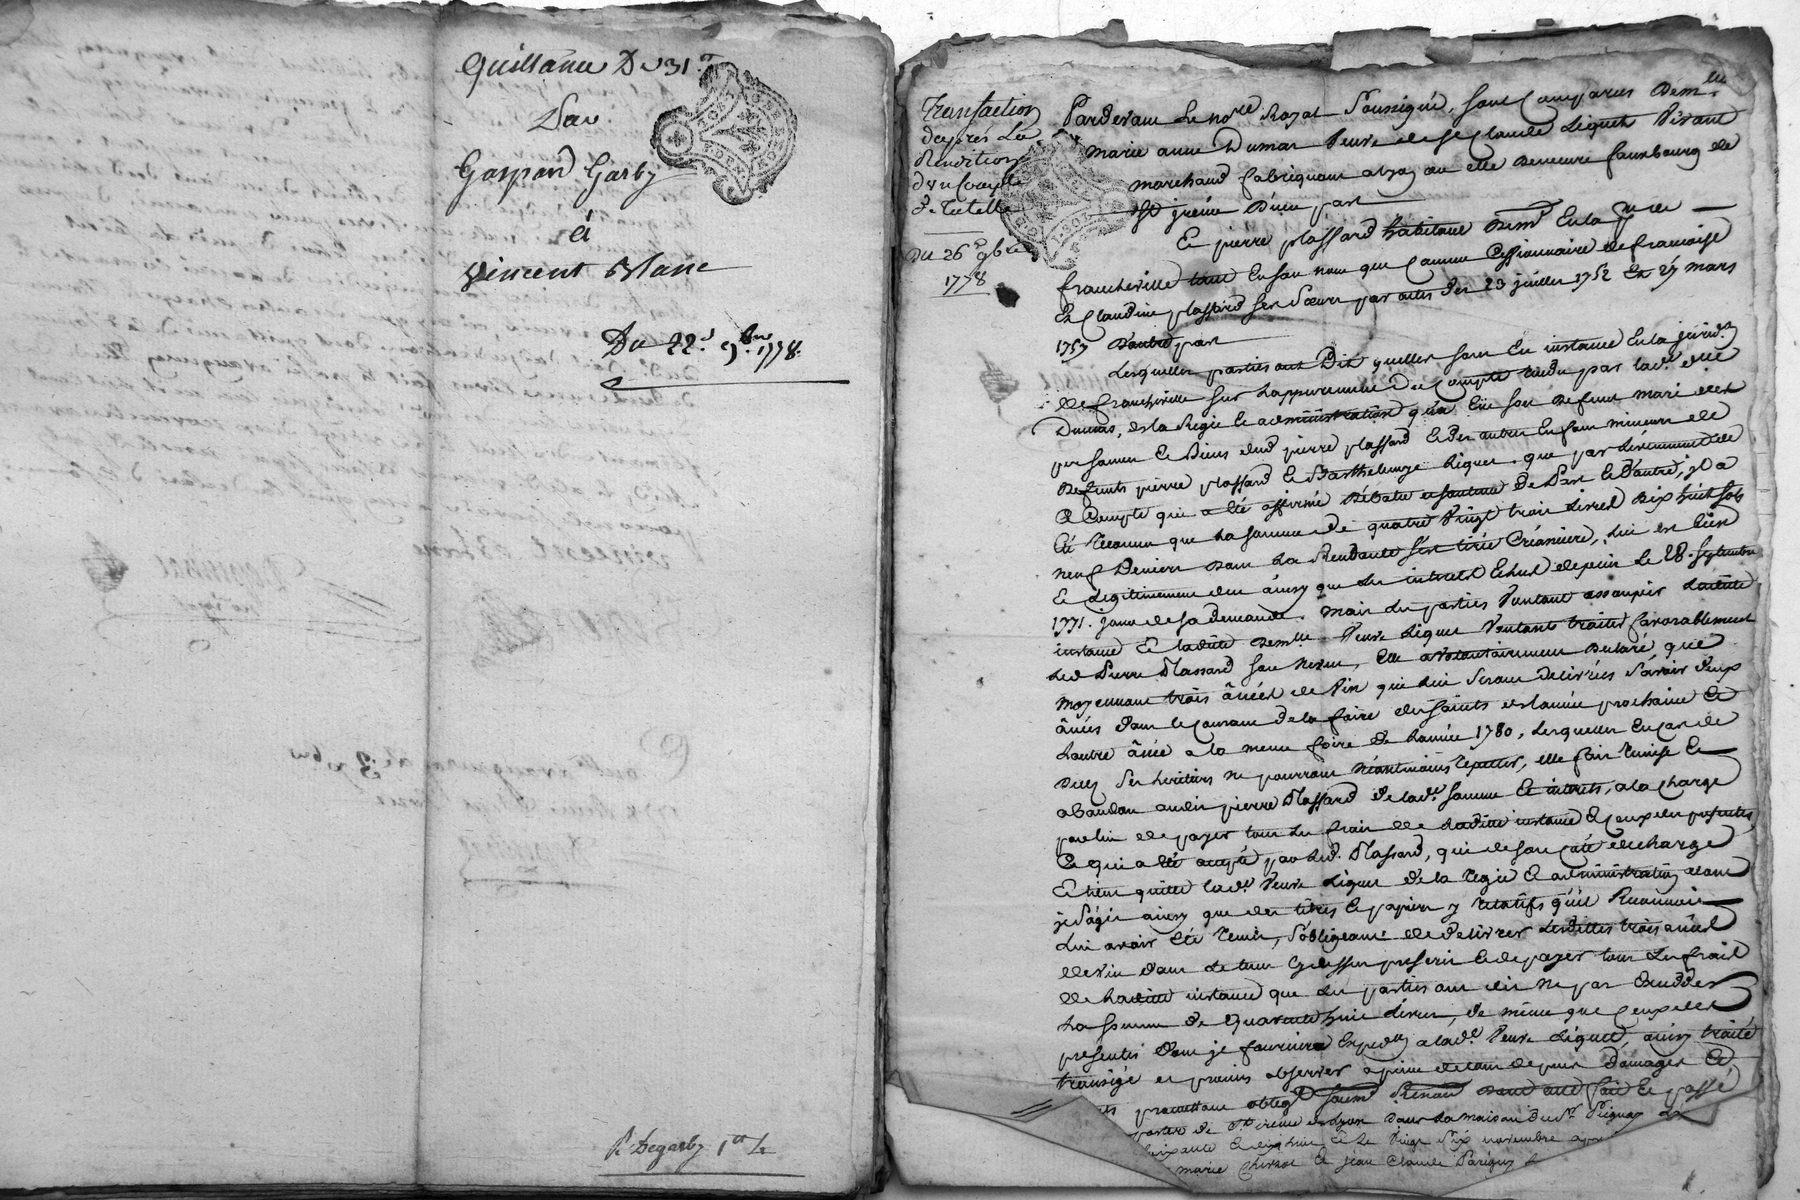 Quittance Du 31.
Par
Gaspard Garby
à
Vincent Blanc
Du 22.e 9.bre 1778.
P. Degarby 1
Transaction
d'après La
Reddition
d'un Compte
de Tutelle
Du 26.e 9bre
1778
Pardevant Le no.re Royal Soussigné, sont Comparus Dem.lle
marie anne Dumas Veuve de s.r Claude Liquet Vivant
marchand fabriquant a Lyon ou elle Demeure fauxbourg de
St jrenée D'une part
Et pierre plassard habitant dem.t En la
francheville tant En son nom que Comme Cessionnaire de francoise
Et Claudine plassard ses Sœurs par actes des 23 juillet 1752 Et 27 mars
1757 D'autre part
Lesquelles parties ont Dit qu'elles sont En instance En la jurid.on
de francheville sur L'appurement Du Compte Rendu par lad.e d.lle
Dumas, de la Regie Et administration qu'a Eüe son Defunt mari des
personnes Et Biens dud pierre plassard Et des autres Enfans mineurs de
Defunts pierre plassard Et Barthelemye Liquet. que par L'evenement de
Ce Compte qui a été affirmé Débatu et soutenu de Part Et D'autre, jl a
Eté Reconnu que La somme de quatre Vingt trois Livres Dix huit sols
neuf Deniers dont La Rendante s'est tirée Créanciere, lui est bien
Et Legitimement due ainsy que les interets Echus depuis Le 28. Septembre
1771. jour de sa demande. mais les parties Voulant assoupir Ladite
instance Et ladite Dem.lle Veuve Liquet Voulant traiter favorablement
Led Pierre Plassard son Neveu, Elle a Volontairement Declaré que
moyennant trois ânées de Vin qui lui seront Delivrées Savoir deux
ânées dans le courant de la foire des saints de L'année prochaine Et
L'autre ânée a la meme foire de L'année 1780, Lesquelles En cas de
Deces Ses heritiers ne pourront Néantmoins repetter, elle fait Remise Et
abandon audit pierre Plassard de lad.e somme Et interets, a la Charge
par lui de payer tous Les frais de Ladite instance Et Ceux des presentes,
Ce qui a été accepté par Led. Plassard, qui de son Coté decharge
Et tient quitte lad.e Veuve Liquet de la regie Et administration dont
jl s'agit ainsy que des titres Et papiers y relatifs qu'il Reconnoit
Lui avoir Eté remis, s'obligeant de delivrer Lesdittes trois ânées
de vin dans Le tems Cy dessus prescrit Et de payer tous Les frais
de Ladite instance que Les parties ont dit ne pas Exceder
La somme de Quarante huit Livres, de même que ceux des
presentes dont je fournirai Exped.on a lad.e Veuve Liquet, ainsy traité
transigé et promis observer a peine de tous depens Domages Et
promettant oblig.t soumet Renon dont acte fait Et passé
de St. irenée de Lyon Dans La maison Du s.r
soixante Et dix huit Et Le Vingt Six novembre
marie Et jean Claude